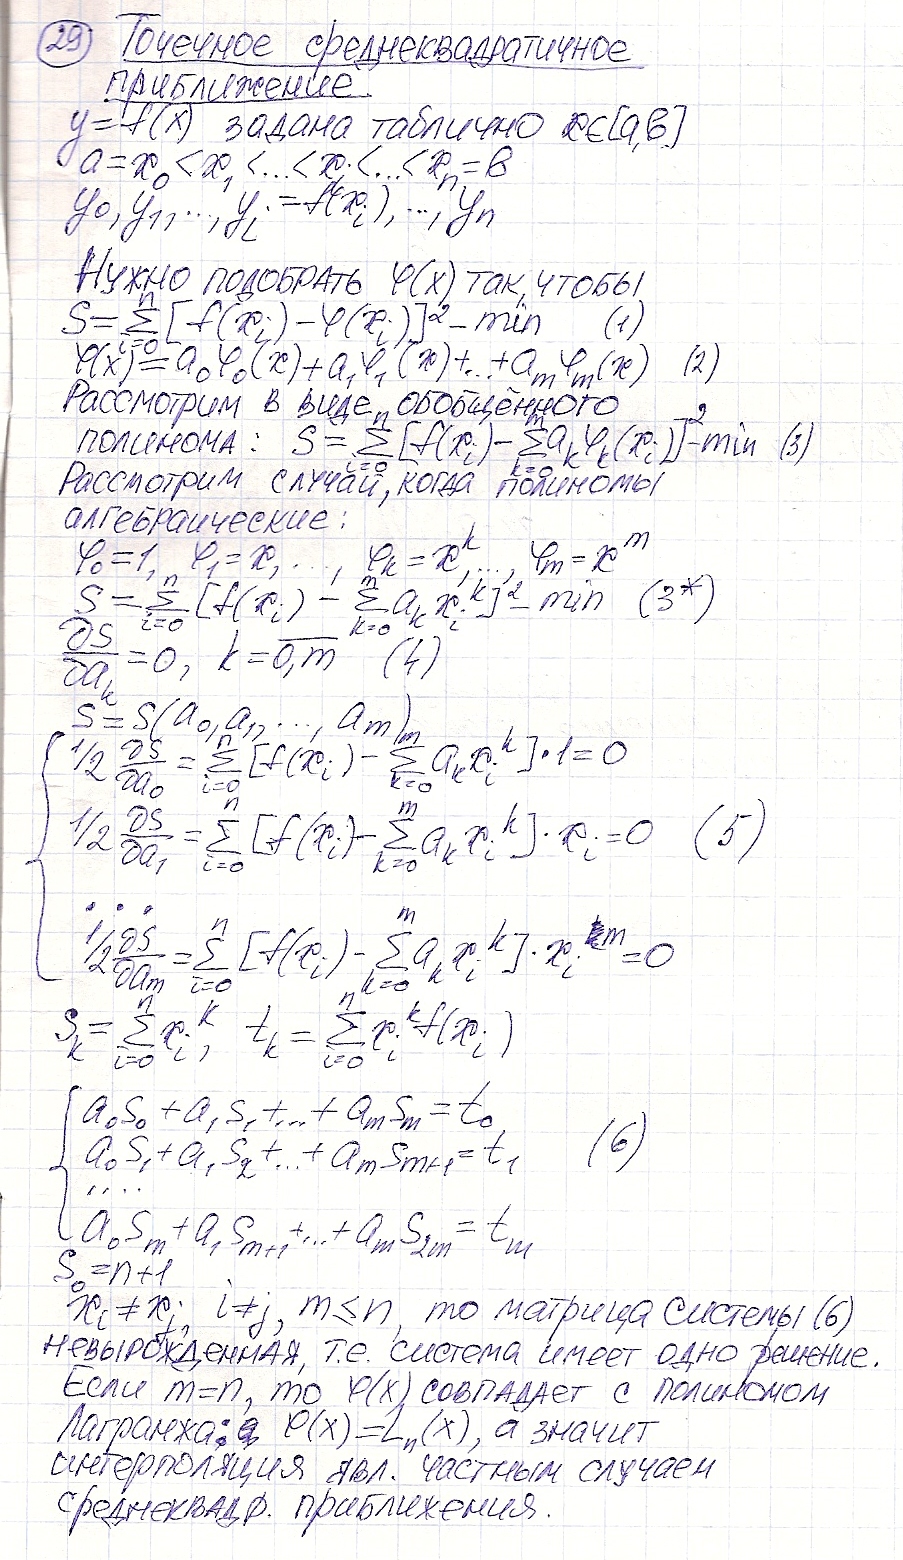 29 Точечное среднеквадратичное
приближение.
y=f(x) задана таблично x∈[a,b]
a=x₀<x₁<...<xᵢ<...<xₙ=b
y₀,y₁,...,yᵢ=f(xᵢ),...,yₙ
Нужно подобрать φ(x) так, чтобы
S=∑ⁿᵢ₌₀[f(xᵢ)-φ(xᵢ)]²-min (1)
φ(x)=a₀φ₀(x)+a₁φ₁(x)+...+aₘφₘ(x) (2)
Рассмотрим в виде обобщённого
полинома: S=∑ⁿᵢ₌₀[f(xᵢ)-∑ᵐₖ₌₀aₖφₖ(xᵢ)]²-min (3)
Рассмотрим случай, когда полиномы
алгебраические:
φ₀=1, φ₁=x,..., φₖ=xᵏ,..., φₘ=xᵐ
S=∑ⁿᵢ₌₀[f(xᵢ)-∑ᵐₖ₌₀aₖxᵢᵏ]²-min (3*)
∂S/∂aₖ=0, k=0,m (4)
S=S(a₀,a₁,...,aₘ)
1/2 ∂S/∂a₀=∑ⁿᵢ₌₀[f(xᵢ)-∑ᵐₖ₌₀aₖxᵢᵏ]·1=0
1/2 ∂S/∂a₁=∑ⁿᵢ₌₀[f(xᵢ)-∑ᵐₖ₌₀aₖxᵢᵏ]·xᵢ=0 (5)
...
1/2 ∂S/∂aₘ=∑ⁿᵢ₌₀[f(xᵢ)-∑ᵐₖ₌₀aₖxᵢᵏ]·xᵢᵐ=0
Sₖ=∑ⁿᵢ₌₀xᵢᵏ, tₖ=∑ⁿᵢ₌₀xᵢᵏf(xᵢ)
a₀S₀+a₁S₁+...+aₘSₘ=t₀
a₀S₁+a₁S₂+...+aₘSₘ₊₁=t₁ (6)
....
a₀Sₘ+a₁Sₘ₊₁+...+aₘS₂ₘ=tₘ
S₀=n+1
xᵢ≠xⱼ, i≠j, m≤n, то матрица системы (6)
невырожденная, т.е. система имеет одно решение.
Если m=n, то φ(x) совпадает с полиномом
Лагранжа: φ(x)=Lₙ(x), а значит
интерполяция явл. частным случаем
среднеквадр. приближения.